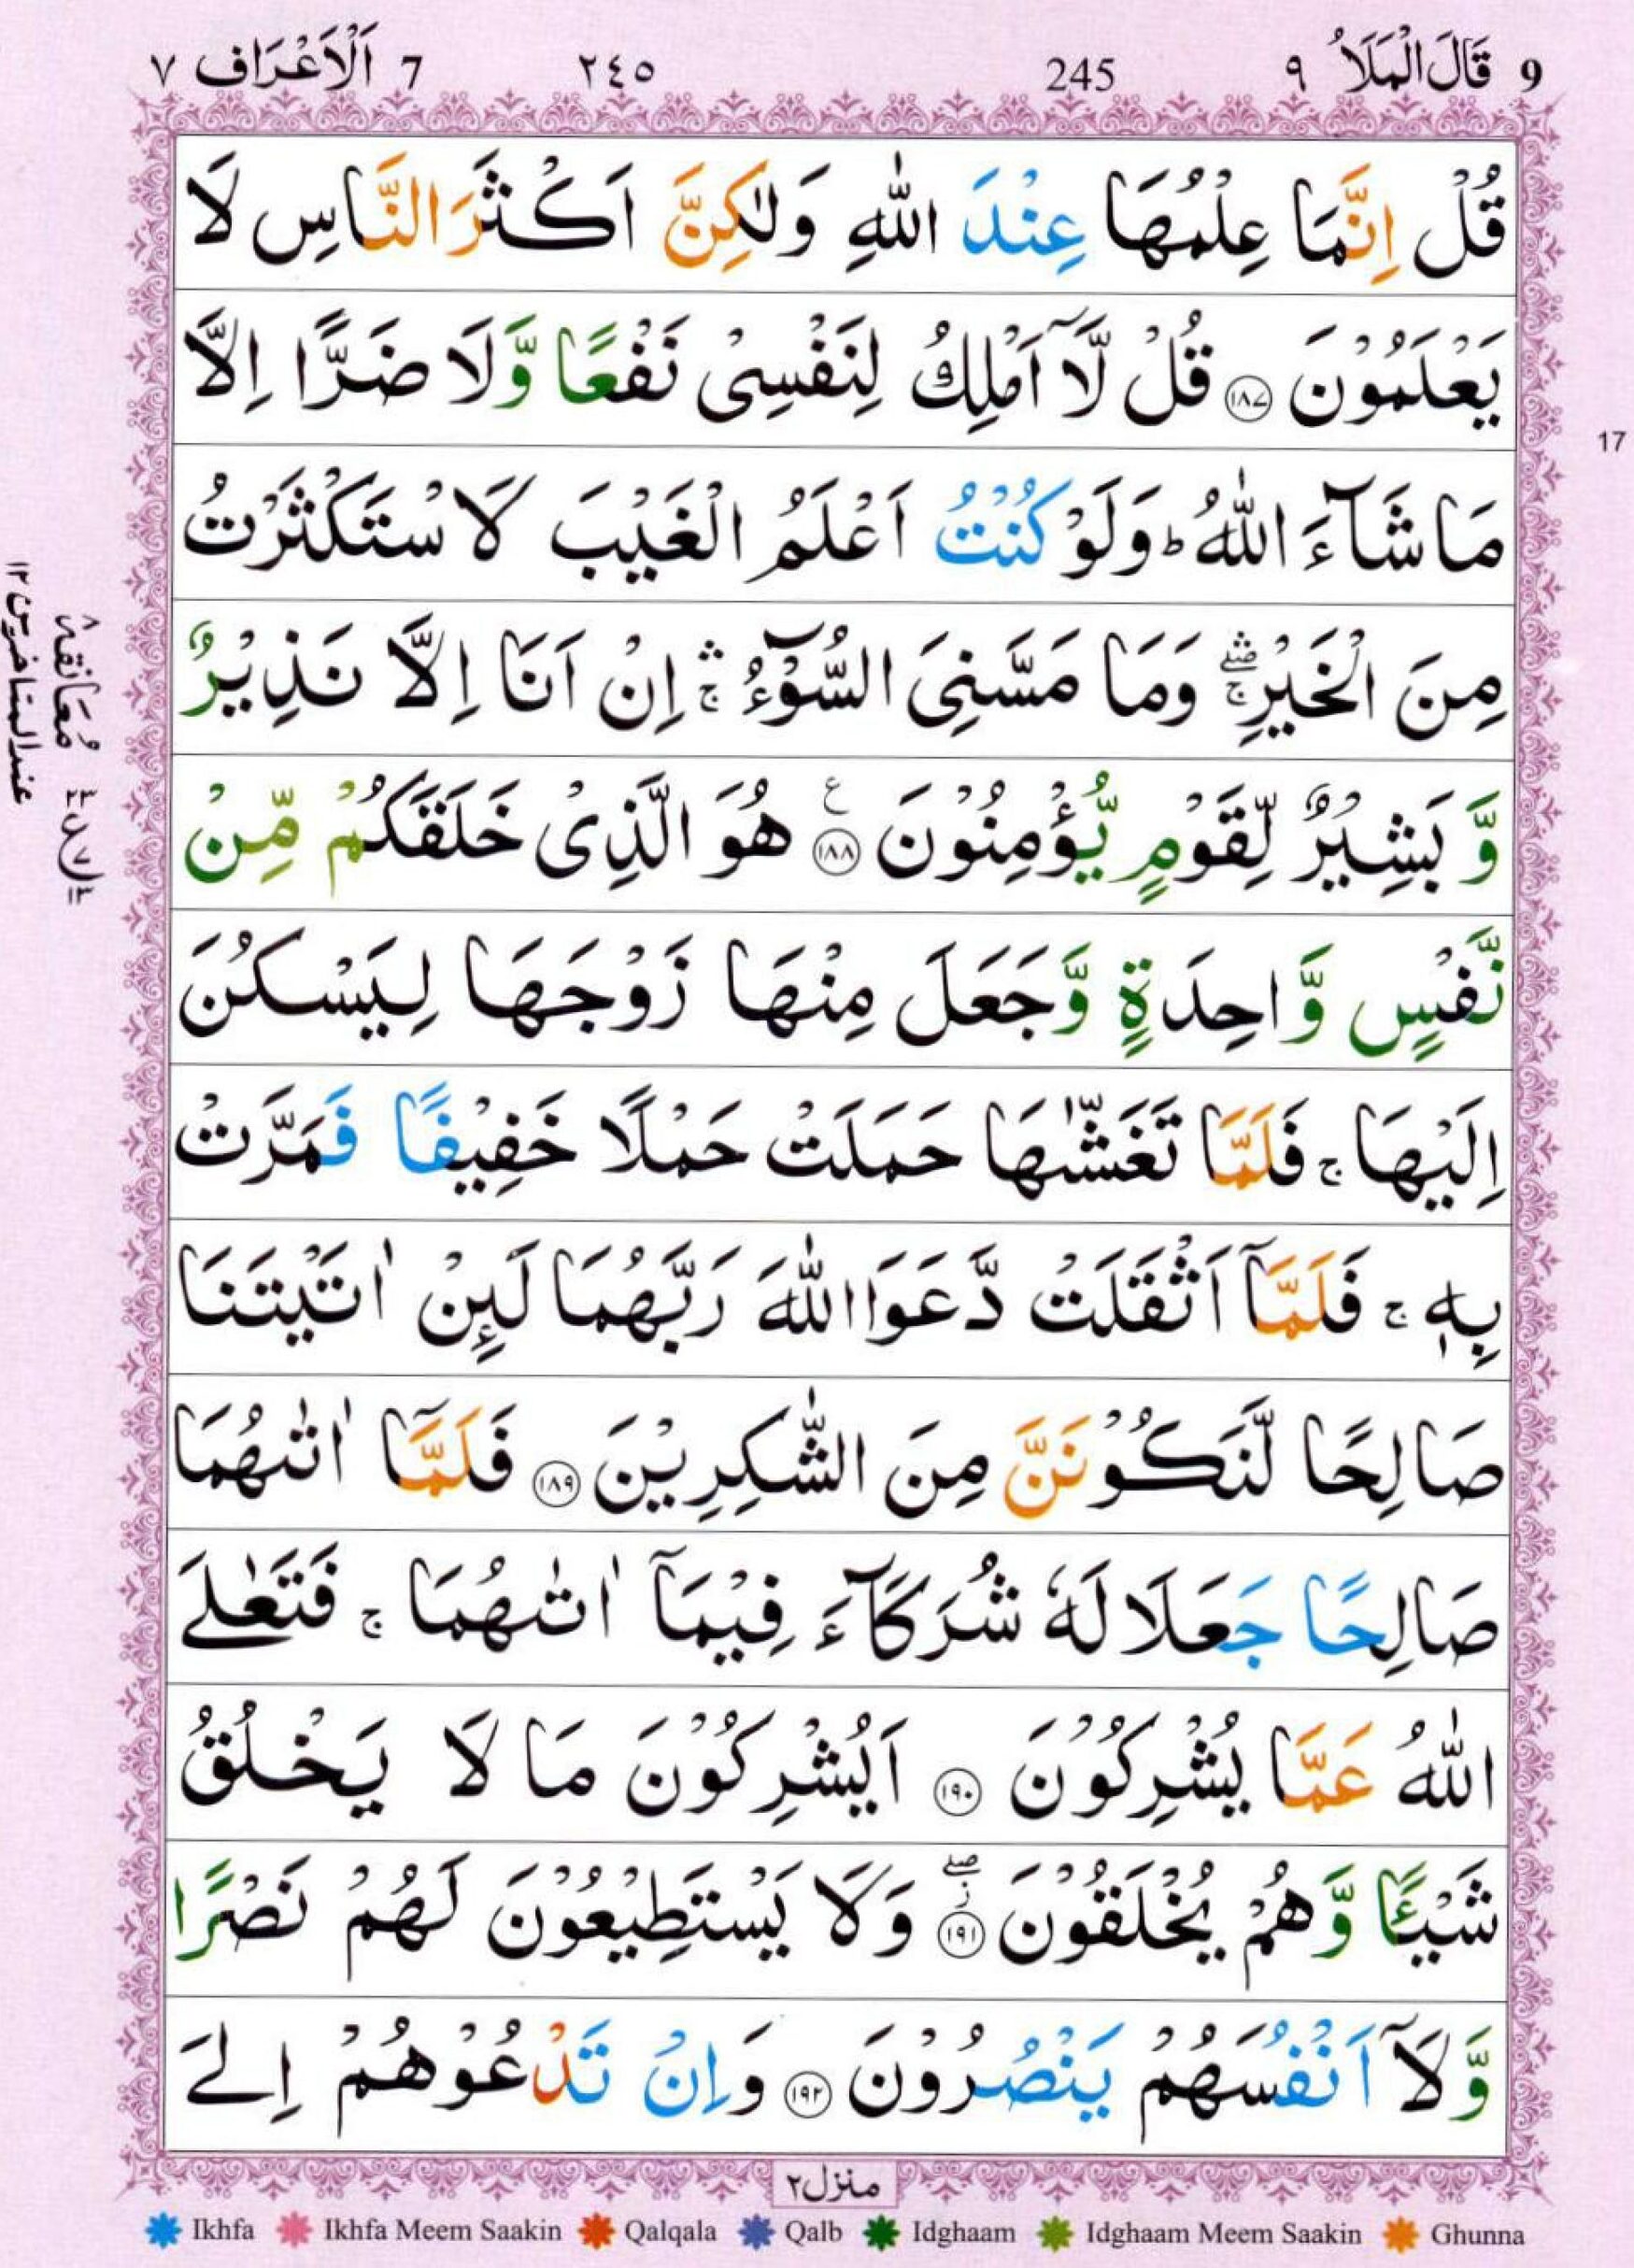 9 قَالَ الْمَلَاُ ٩ 245 ٢٤٥ 7 اَلْاَعْرَاف ٧
قُلْ اِنَّمَا عِلْمُهَا عِنْدَ اللّٰهِ وَلٰكِنَّ اَكْثَرَ النَّاسِ لَا
يَعْلَمُوْنَ ۝١٨٧ قُلْ لَّاۤ اَمْلِكُ لِنَفْسِىْ نَفْعًا وَّلَا ضَرًّا اِلَّا
مَا شَآءَ اللّٰهُ ؕ وَلَوْ كُنْتُ اَعْلَمُ الْغَيْبَ لَا سْتَكْثَرْتُ
مِنَ الْخَيْرِ ۛۖۚ وَمَا مَسَّنِىَ السُّوْٓءُ ۛۚ اِنْ اَنَا اِلَّا نَذِيْرٌ
وَّ بَشِيْرٌ لِّقَوْمٍ يُّؤْمِنُوْنَ ۝١٨٨ ع هُوَ الَّذِىْ خَلَقَكُمْ مِّنْ
نَّفْسٍ وَّاحِدَةٍ وَّجَعَلَ مِنْهَا زَوْجَهَا لِيَسْكُنَ
اِلَيْهَا ۚ فَلَمَّا تَغَشّٰىهَا حَمَلَتْ حَمْلًا خَفِيْفًا فَمَرَّتْ
بِهٖ ۚ فَلَمَّاۤ اَثْقَلَتْ دَّعَوَا اللّٰهَ رَبَّهُمَا لَئِنْ اٰتَيْتَنَا
صَالِحًا لَّنَكُوْنَنَّ مِنَ الشّٰكِرِيْنَ ۝١٨٩ فَلَمَّاۤ اٰتٰٮهُمَا
صَالِحًا جَعَلَا لَهٗ شُرَكَآءَ فِيْمَاۤ اٰتٰٮهُمَا ۚ فَتَعٰلَى
اللّٰهُ عَمَّا يُشْرِكُوْنَ ۝١٩٠ اَيُشْرِكُوْنَ مَا لَا يَخْلُقُ
شَيْـًٔا وَّهُمْ يُخْلَقُوْنَ ۝١٩١ ۖز وَلَا يَسْتَطِيْعُوْنَ لَهُمْ نَصْرًا
وَّلَاۤ اَنْفُسَهُمْ يَنْصُرُوْنَ ۝١٩٢ وَاِنْ تَدْعُوْهُمْ اِلَى
17
معانقة ٨
عند المتاخرين ١٢
منزل ٢
Ikhfa Ikhfa Meem Saakin Qalqala Qalb Idghaam Idghaam Meem Saakin Ghunna